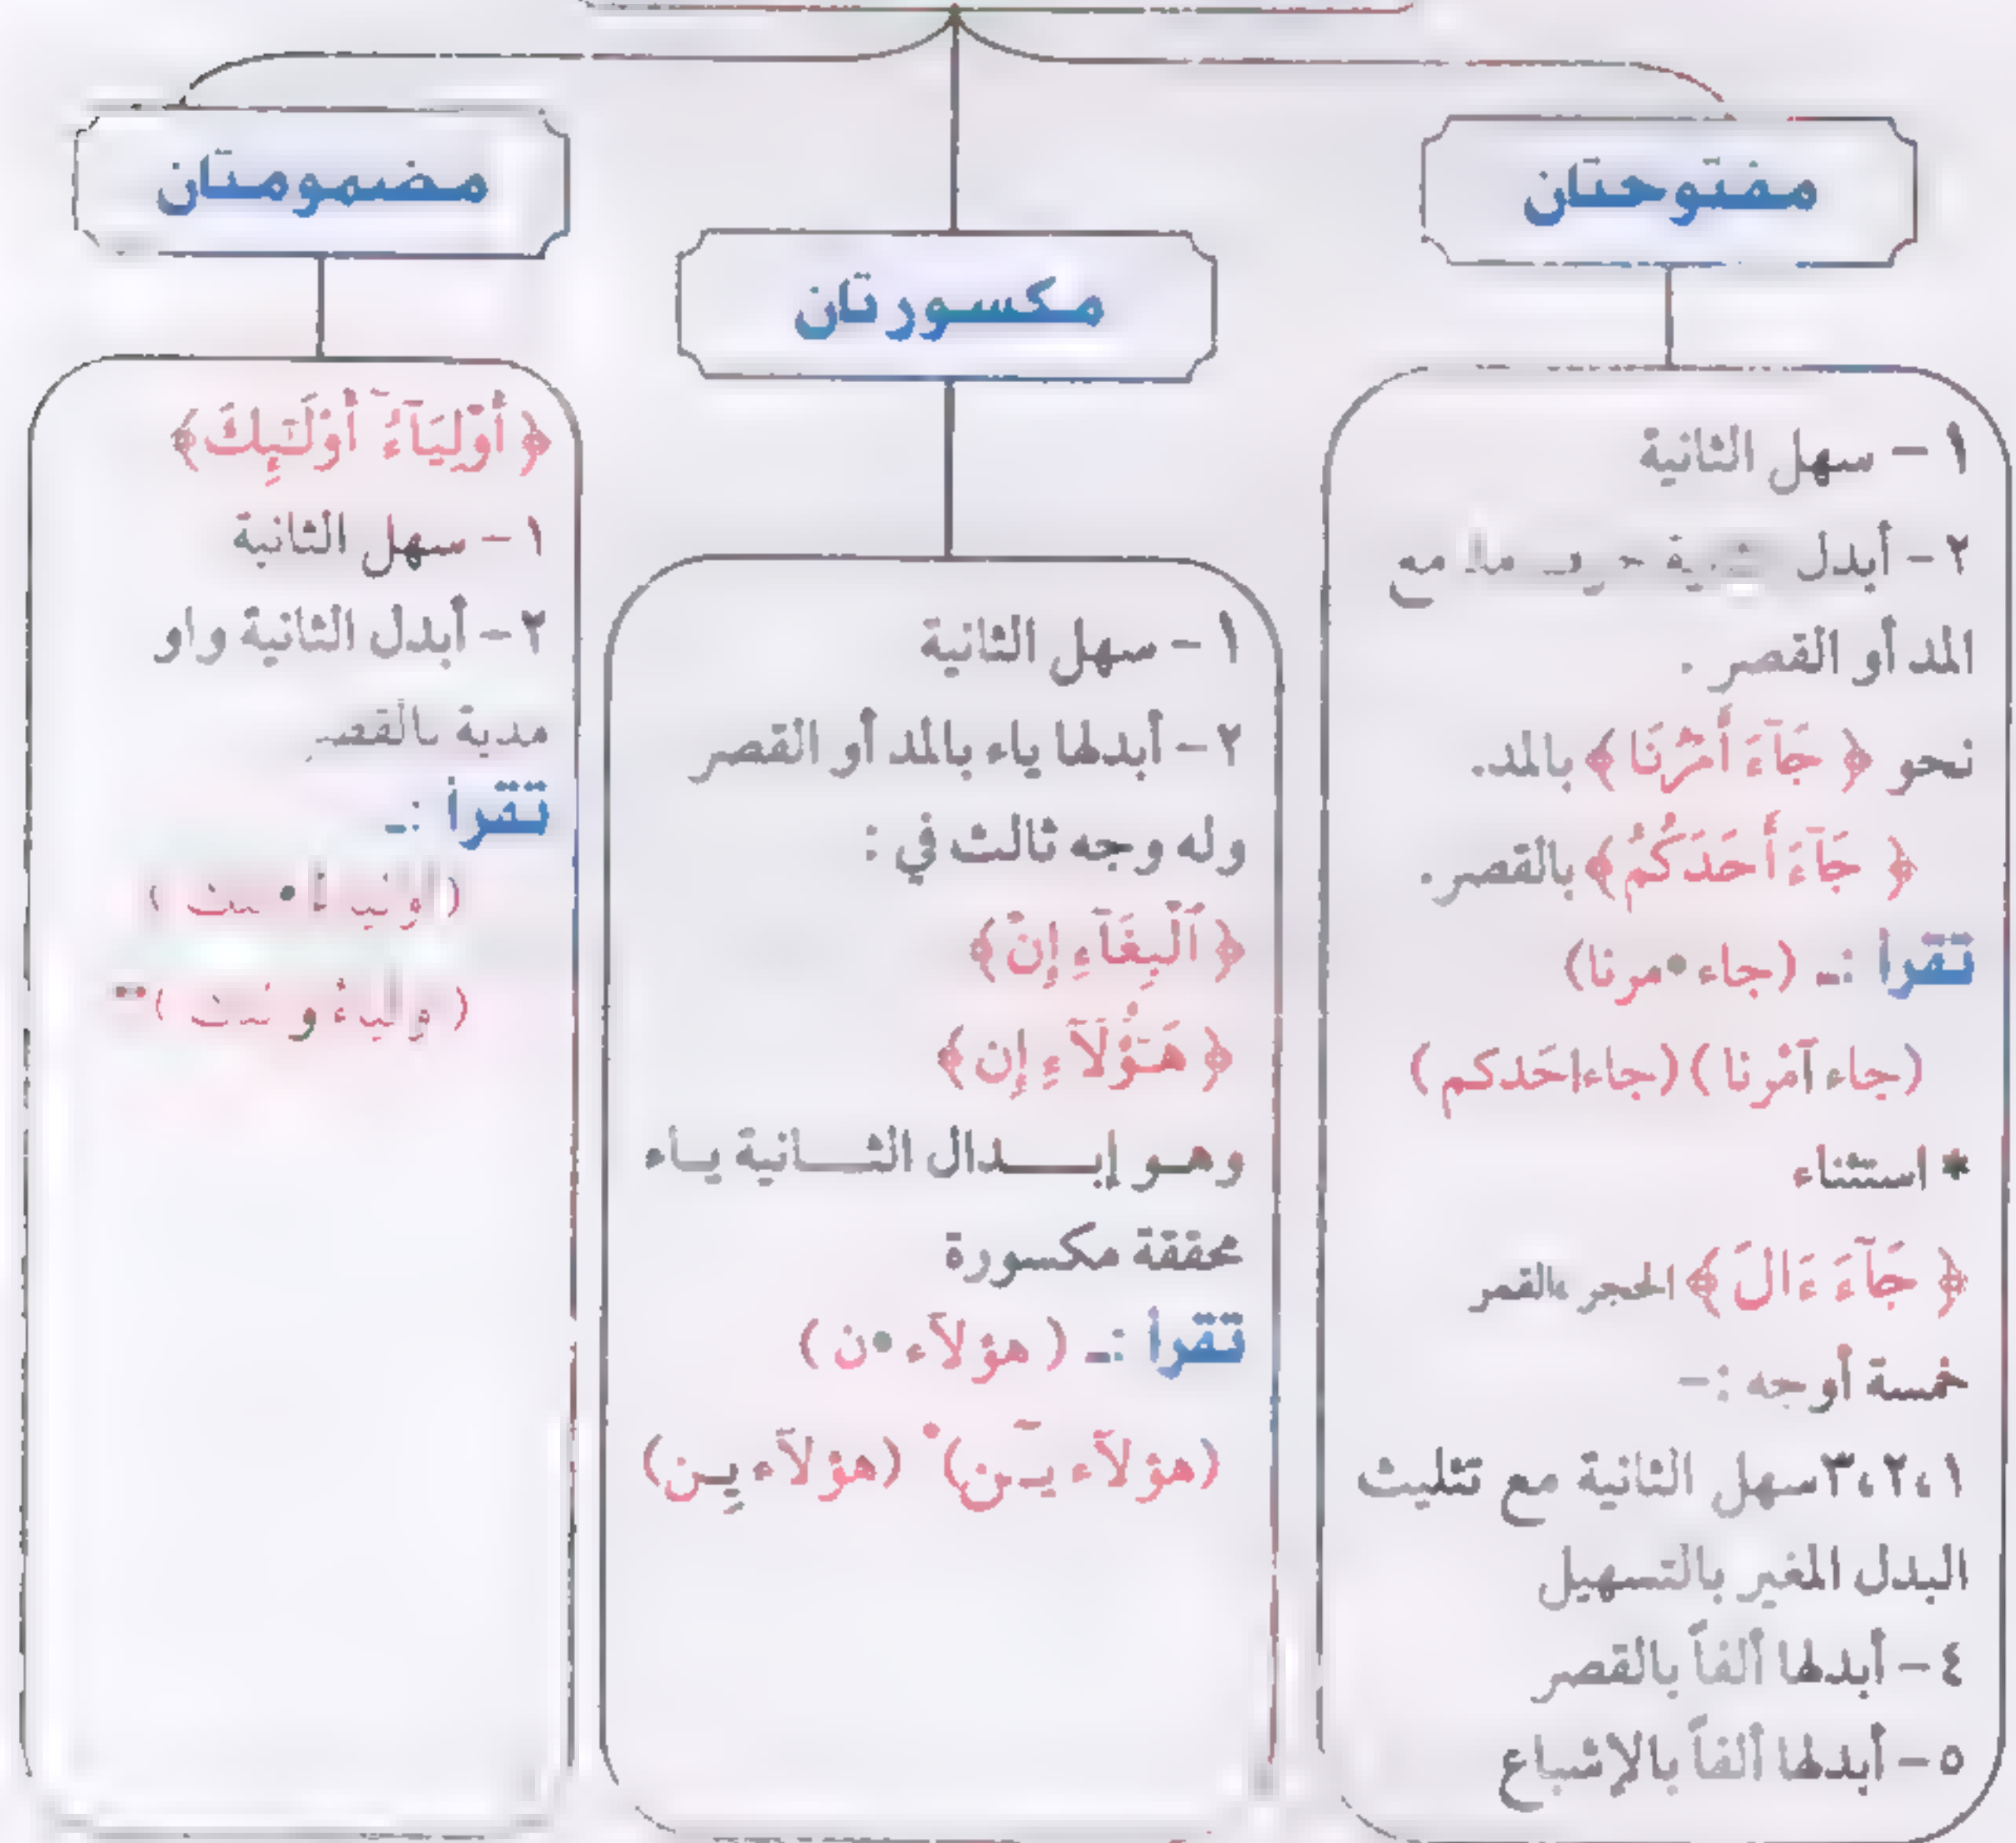 مفتوحتان
١ – سهل الثانية
٢ – أبدل مع
المد أو القصر .
نحو ﴿ جَآءَ أَمْرُنَا ﴾ بالمد.
﴿ جَآءَ أَحَدَكُمُ ﴾ بالقصر.
تقرأ :ـ (جاء•مرنا)
(جاء آمْرنا) (جاءاحَدكم)
* استثناء
﴿ جَآءَ ءَالَ ﴾ الحجر بالقمر
خمسة أوجه :–
١،٢،٣سهل الثانية مع تثليث
البدل المغير بالتسهيل
٤ – أبدلها ألفاً بالقصر
٥ – أبدلها ألفاً بالإشباع
مكسورتان
١ – سهل الثانية
٢ – أبدلها ياء بالمد أو القصر
وله وجه ثالث في :
﴿ ٱلْبِغَآءِ إِنْ ﴾
﴿ هَـٰٓؤُلَآءِ إِن ﴾
وهو إبدال الثانية ياء
محققة مكسورة
تقرأ :ـ ( هؤلآء •ن )
(هؤلآء يـٓن) (هؤلآء يِـن)
مضمومتان
﴿ أَوْلِيَآءُ أُوْلَـٰٓئِكَ ﴾
١ – سهل الثانية
٢ – أبدل الثانية واو
مدية بالقصر
تقرأ :ـ